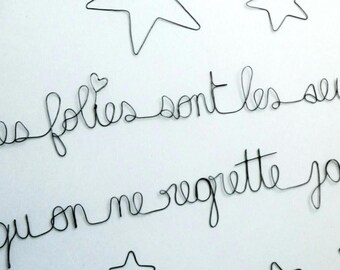 es folies sont les seu
qu'on ne regrette ja